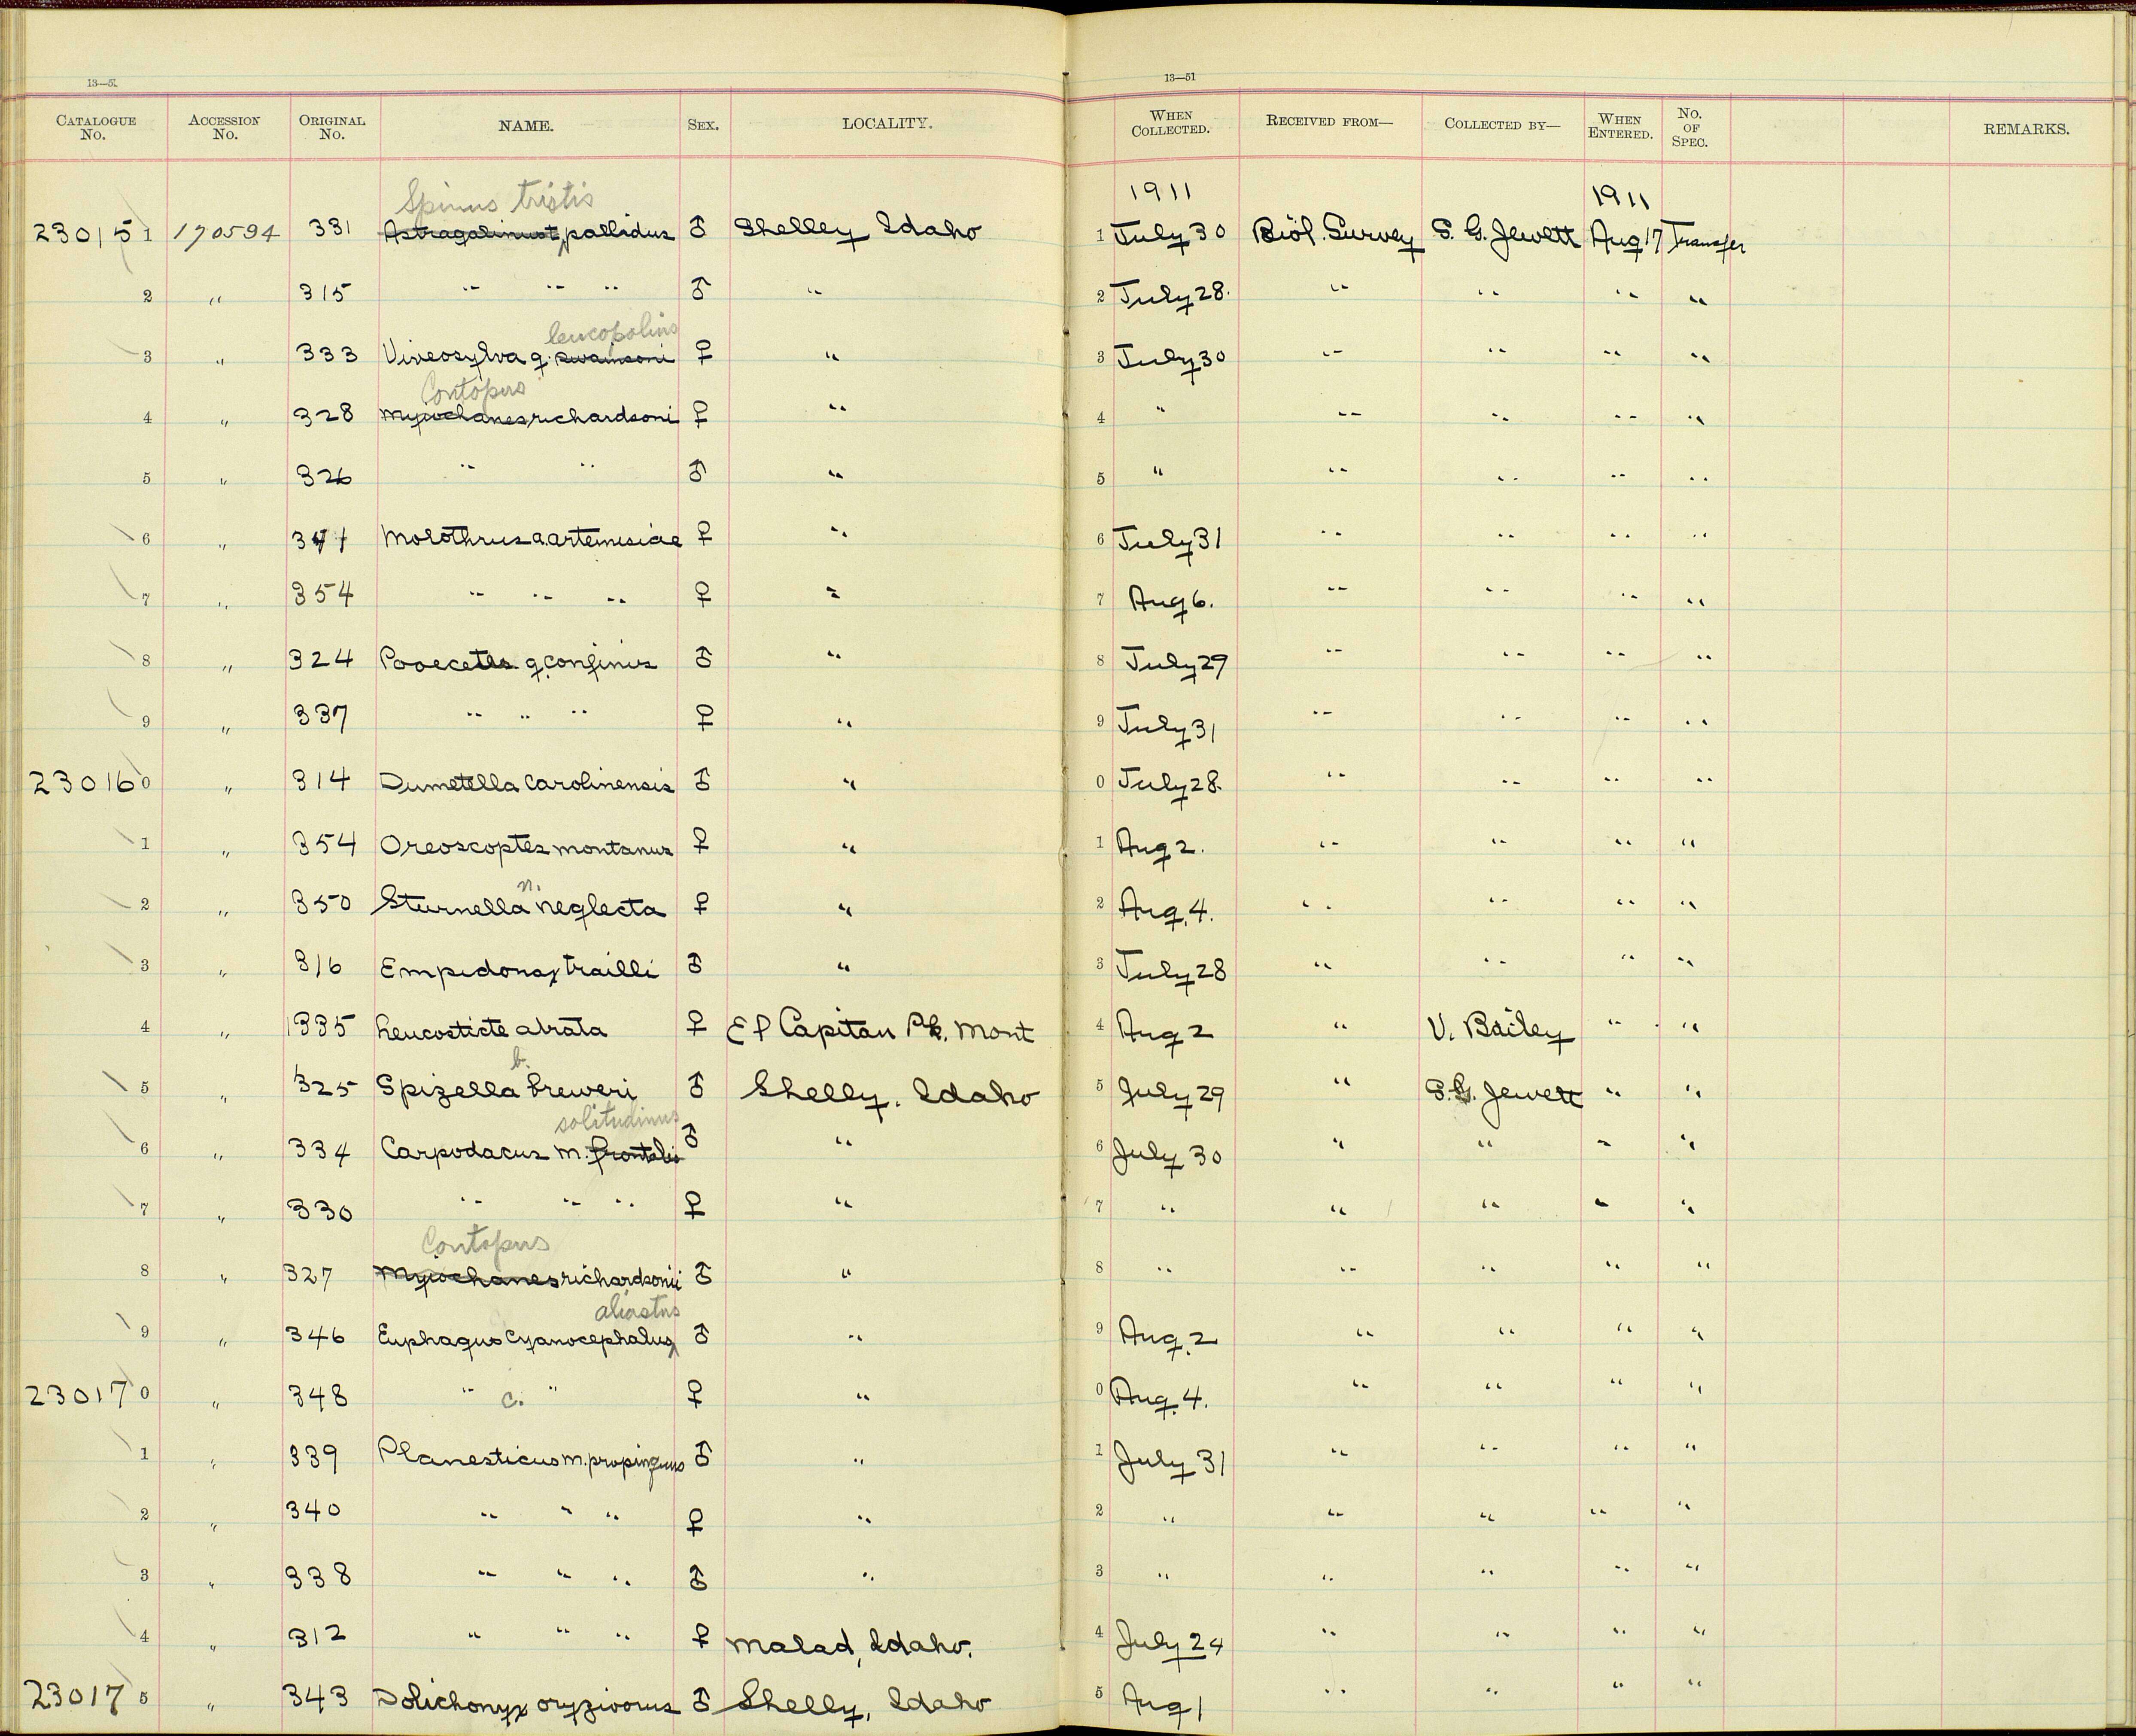 13—51 13—51
CATALOGUE No. ACCESSION No. ORIGINAL No. NAME. SEX. LOCALITY. WHEN COLLECTED. RECEIVED FROM— COLLECTED BY— WHEN ENTERED. No. OF SPEC. REMARKS.
Spinus tristis 1911 1911
23015 1 170594 331 Astragalinus t. pallidus ♂ Shelley Idaho 1 July 30 Biol. Survey S. G. Jewett Aug 17 Transfer
2 " 315 " " " ♂ " 2 July 28. " " " "
leucopolius
3 " 333 Vireosylva g. swainsoni ♀ " 3 July 30 " " " "
Contopus
4 " 328 Myiochanes richardsoni ♀ " 4 " " " " "
5 " 326 " " ♂ " 5 " " " " "
6 " 341 Molothrus a. artemisiae ♀ " 6 July 31 " " " "
7 " 354 " " " ♀ " 7 Aug 6. " " " "
8 " 324 Pooecetes g. confinis ♂ " 8 July 29 " " " "
9 " 337 " " " ♀ " 9 July 31 " " " "
23016 0 " 314 Dumetella carolinensis ♂ " 0 July 28. " " " "
1 " 354 Oreoscoptes montanus ♀ " 1 Aug 2. " " " "
n.
2 " 350 Sturnella neglecta ♀ " 2 Aug. 4. " " " "
3 " 316 Empidonax trailli ♂ " 3 July 28 " " " "
4 " 1335 Leucosticte atrata ♀ El Capitan Pk. Mont 4 Aug 2 " V. Bailey " "
b.
5 " 325 Spizella breweri ♂ Shelly. Idaho 5 July 29 " S. G. Jewett " "
solitudinus
6 " 334 Carpodacus m. frontalis ♂ " 6 July 30 " " " "
7 " 330 " " " ♀ " 7 " " " " "
Contopus
8 " 327 Myiochanes richardsonii ♂ " 8 " " " " "
aliastus
9 " 346 Euphagus cyanocephalus ♂ " 9 Aug. 2 " " " "
23017 0 " 348 " c. " ♀ " 0 Aug. 4. " " " "
1 " 339 Planesticus m. propinquus ♂ " 1 July 31 " " " "
2 " 340 " " " ♀ " 2 " " " " "
3 " 338 " " " ♂ " 3 " " " " "
4 " 312 " " " ♀ Malad, Idaho. 4 July 24 " " " "
23017 5 " 343 Dolichonyx oryzivorus ♂ Shelly, Idaho 5 Aug 1 " " " "